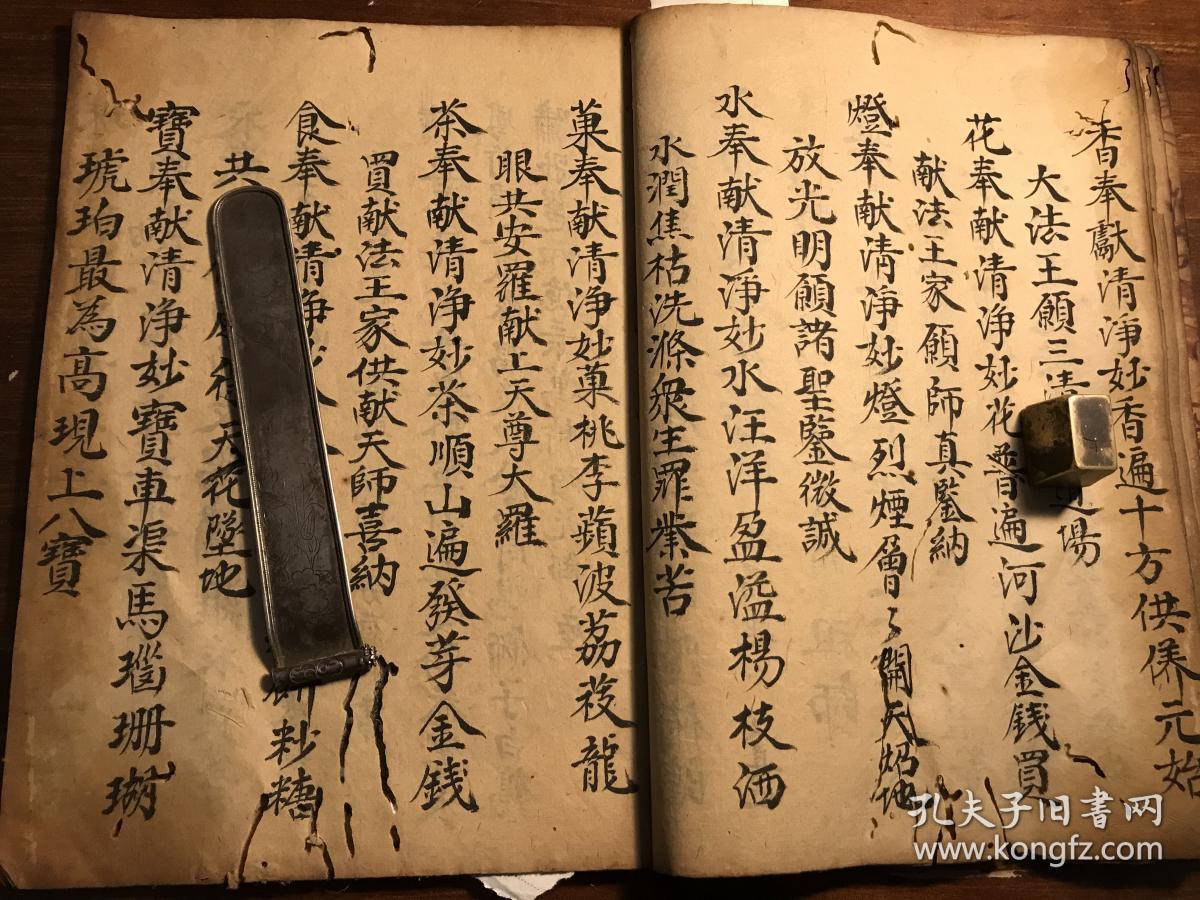 香奉獻清淨妙香遍十方供養元始
大法王願三清 道場
花奉献清淨妙花普遍河沙金錢買
献法王家願師真鑒納
燈奉献清淨妙燈烈煙層々開天炤地
放光明願諸聖鑒微誠
水奉献清淨妙水汪洋盈溢楊枝洒
水潤焦枯洗滌衆生罪業苦
菓奉献清淨妙菓桃李蘋波荔
龍
眼共安羅献上天尊大羅
茶奉献清淨妙茶順山遍發芽金錢
買献法王家供献天師喜納
食奉献清淨 餅粆糖
共 天花墜地
寶奉献清淨妙寶車渠馬瑙珊瑚
琥珀最為高現上八寶
孔夫子旧书网
www.kongfz.com